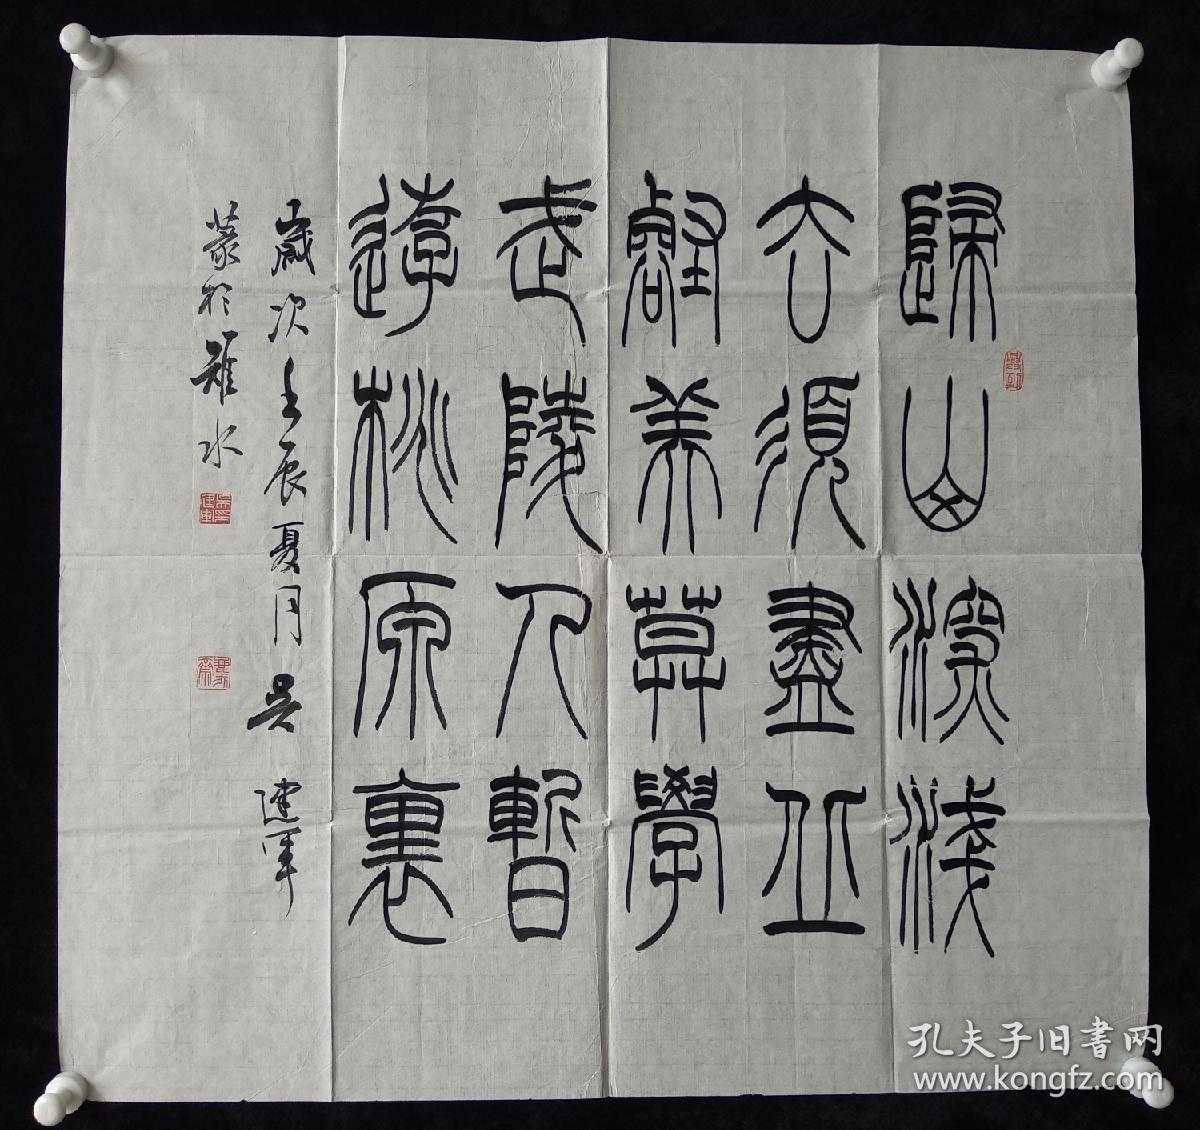 歸山深淺
去須盡丘
壑美莫學
武陵人暫
遊桃原裏
歲次壬辰夏月吴建軍
篆於雒水
孔夫子旧書网
www.kongfz.com